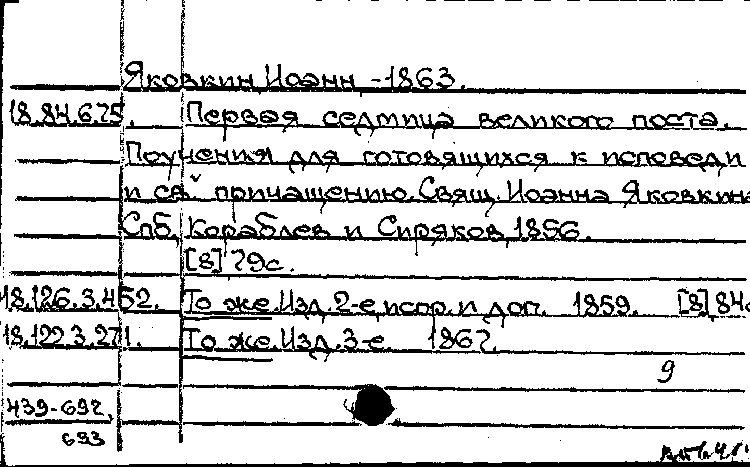 Яковкин, Иоанн -1863.
18.84.6.25. Первая седмица великого поста.
Поучения для готовящихся к исповеди
и св. причащению. Свящ. Иоанна Яковкина
Спб, Кораблев и Сиряков, 1856.
[8] 79с.
18.126.3.452. То же. Изд. 2-е, испр. и доп. 1859. [8] 84с
18.122.3.271. То же. Изд. 3-е 1867.
9
439-692,
693